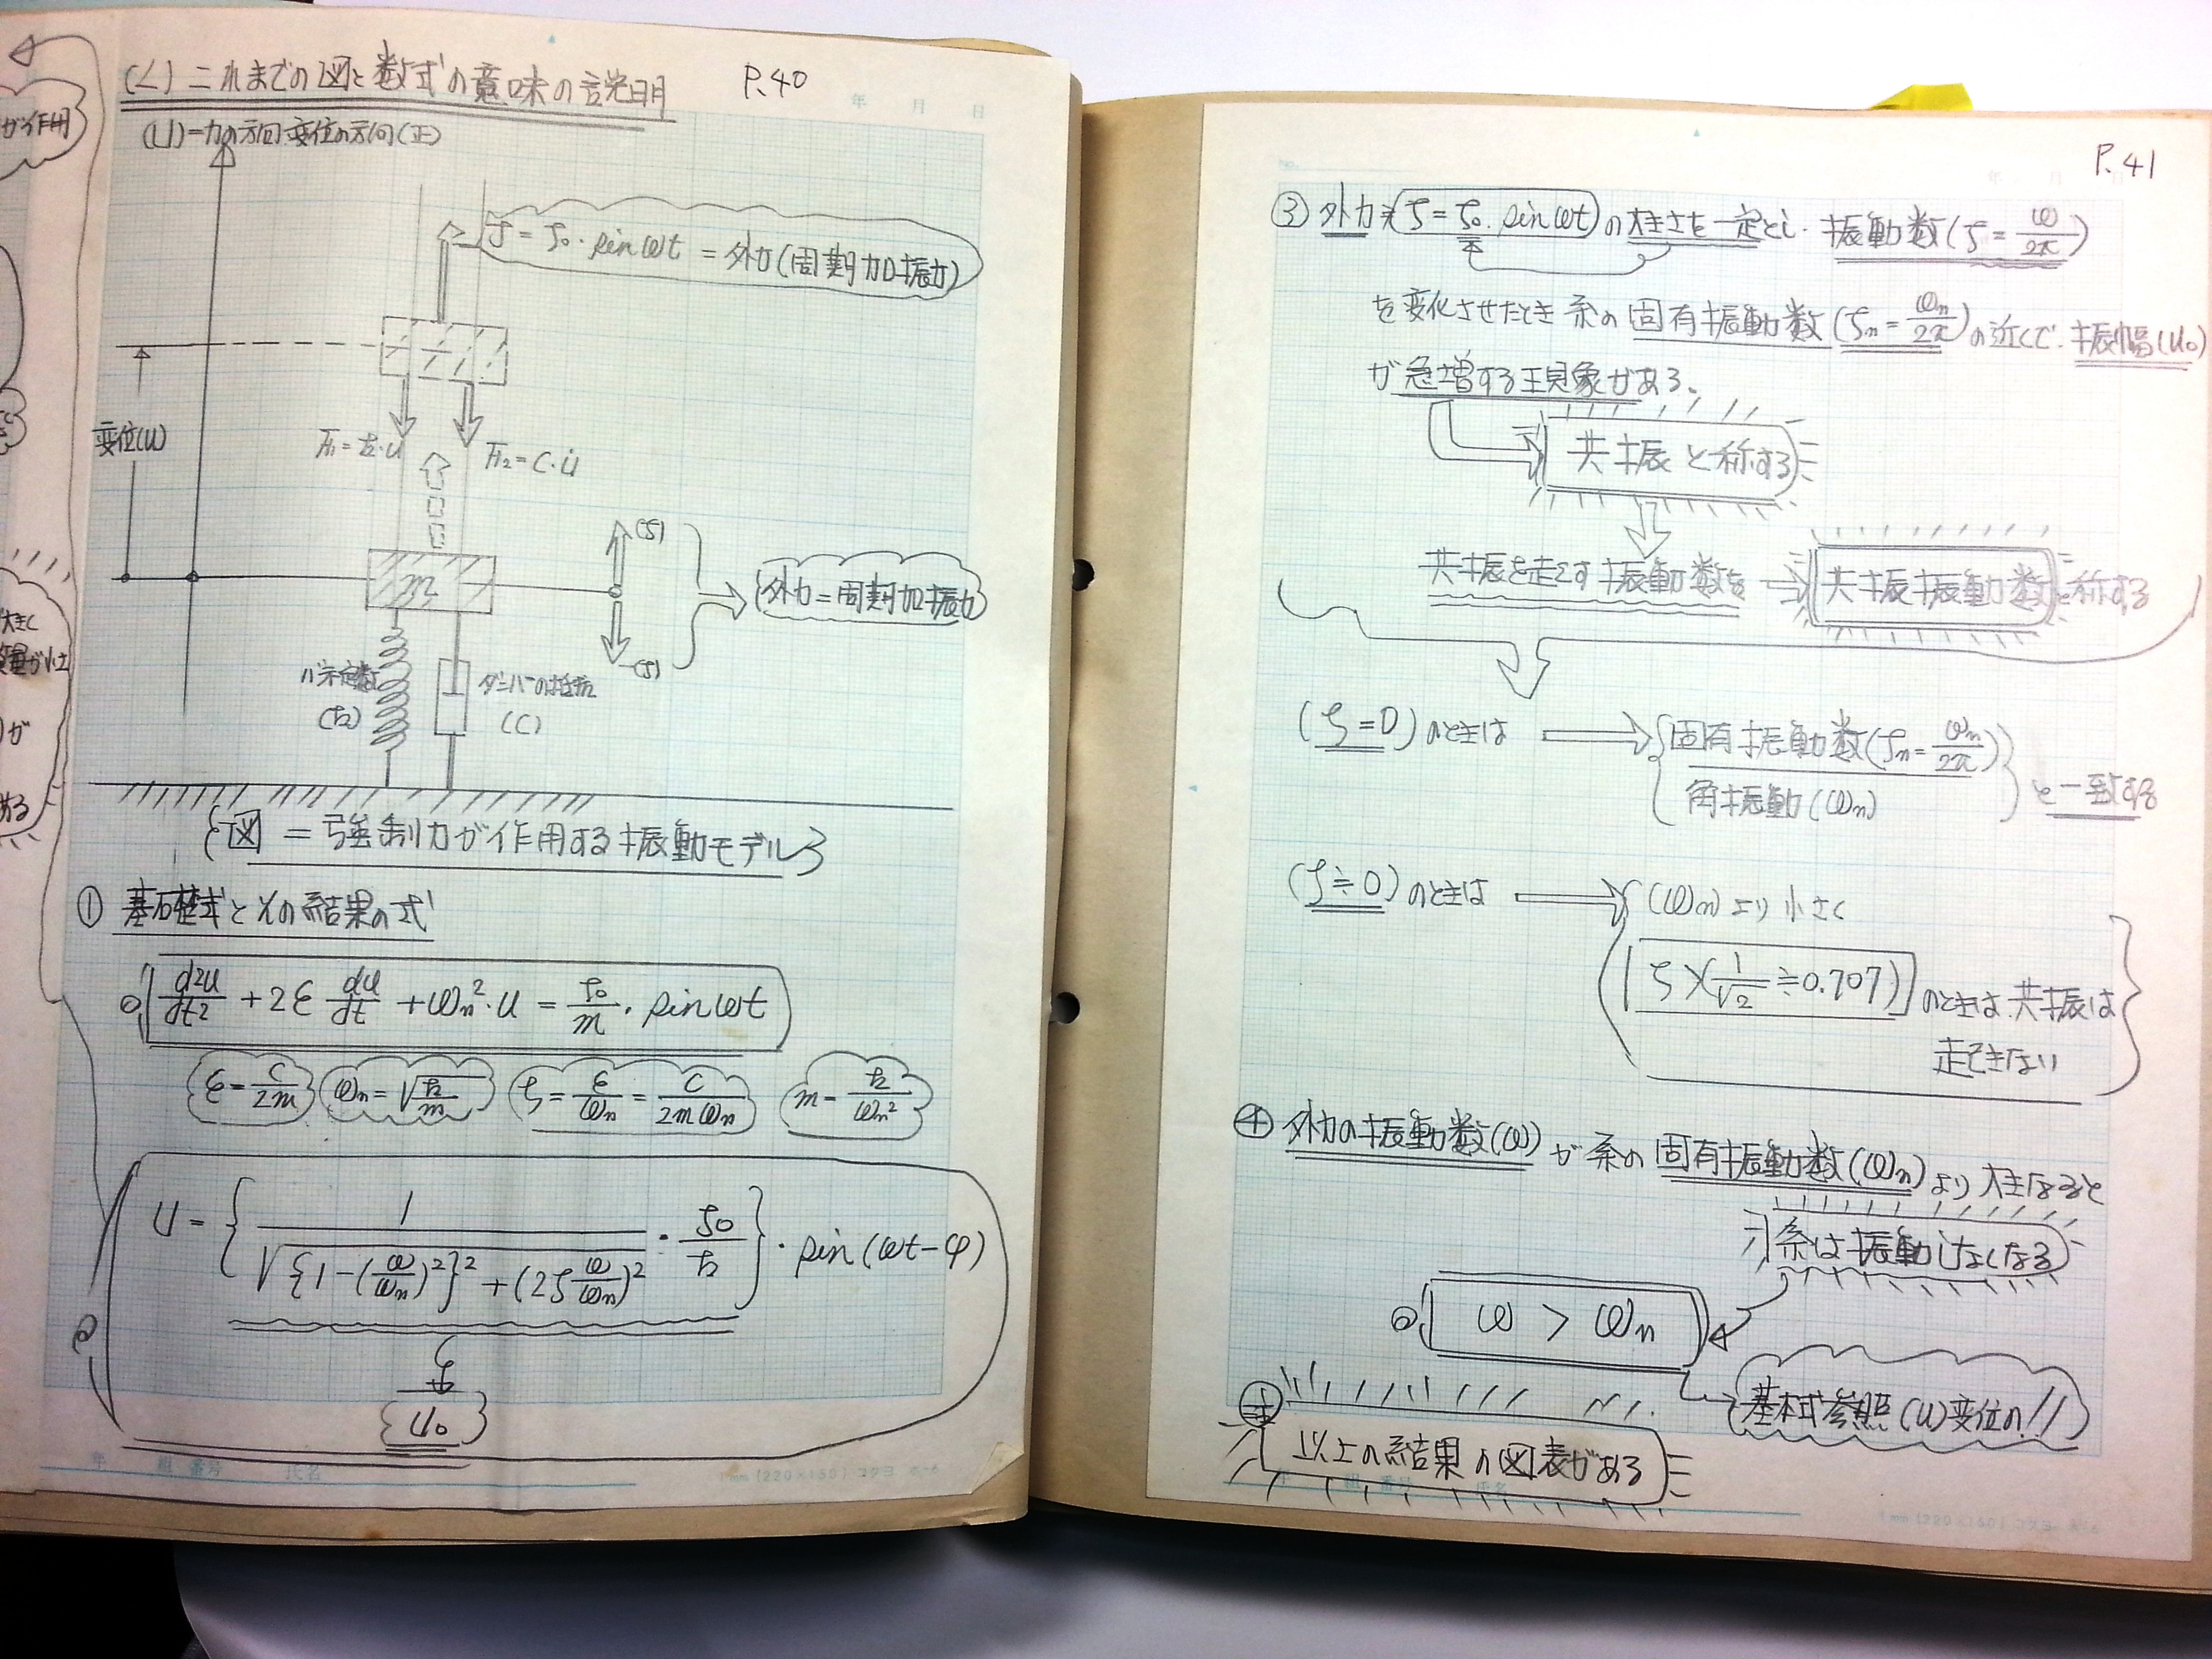 が作用
大きく
が
ある
(ム) これまでの図と数式の意味の説明 P.40
(U)-力の方向・変位の方向(正)
f = f₀・sin ωt = 外力(周期加振力)
変位(U)
F₁=k・U F₂=C・U̇
m
(f)
外力=周期加振力
-(f)
バネ定数
(k)
ダンパーの抵抗
(C)
{図 = 強制力が作用する振動モデル}
① 基礎式とその結果の式
d2u/dt2 + 2ε du/dt + ωn²・u = f₀/m・sin ωt
ε = C/2m ωn = √k/m ζ = ε/ωn = C/2mωn m = k/ωn²
U = { 1/√{1-(ω/ωn)²}² + (2ζ ω/ωn)² ・ f₀/k }・sin (ωt-φ)
U₀
年 組 番号 氏名
1mm (220×150) コクヨ
年 月 日
P.41
No.
③ 外力(f = f₀・sin ωt)の大きさを一定とし・振動数(f = ω/2π)
を変化させたとき系の固有振動数(fn = ωn/2π)の近くで・振幅(U₀)
が急増する現象がある。
共振と称する
共振を起こす振動数を 共振振動数と称する
(ζ=0)のときは 固有振動数(fn = ωn/2π)
角振動(ωn)
と一致する
(ζ≒0)のときは (ωn)より小さく
ζ>(1/√2≒0.707)のときは・共振は
起きない
④ 外力の振動数(ω)が系の固有振動数(ωn)より大きなると
系は振動しなくなる
ω > ωn
基本式参照(U)変位の!!
以上の結果の図表がある
年 組 番号 氏名
1mm (220×150) コクヨ